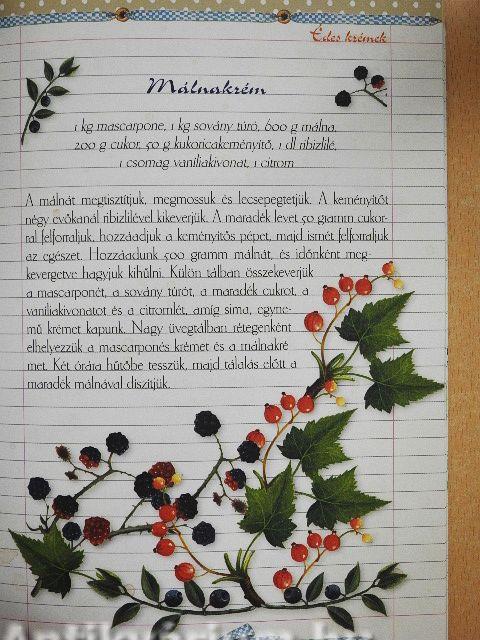 Édes krémek
Málnakrém
1 kg mascarpone, 1 kg sovány túró, 600 g málna,
200 g cukor, 50 g kukoricakeményítő, 1 dl ribizlilé,
1 csomag vaníliakivonat, 1 citrom
A málnát megtisztítjuk, megmossuk és lecsepegtetjük. A keményítőt
négy evőkanál ribizlilével kikeverjük. A maradék levet 50 gramm cukor-
ral felforraljuk, hozzáadjuk a keményítős pépet, majd ismét felforraljuk
az egészet. Hozzáadunk 500 gramm málnát, és időnként meg-
kevergetve hagyjuk kihűlni. Külön tálban összekeverjük
a mascarponét, a sovány túrót, a maradék cukrot, a
vaníliakivonatot és a citromlét, amíg sima, egyne-
mű krémet kapunk. Nagy üvegtálban rétegenként
elhelyezzük a mascarponés krémet és a málnakré
met. Két órára hűtőbe tesszük, majd tálalás előtt a
maradék málnával díszítjük.